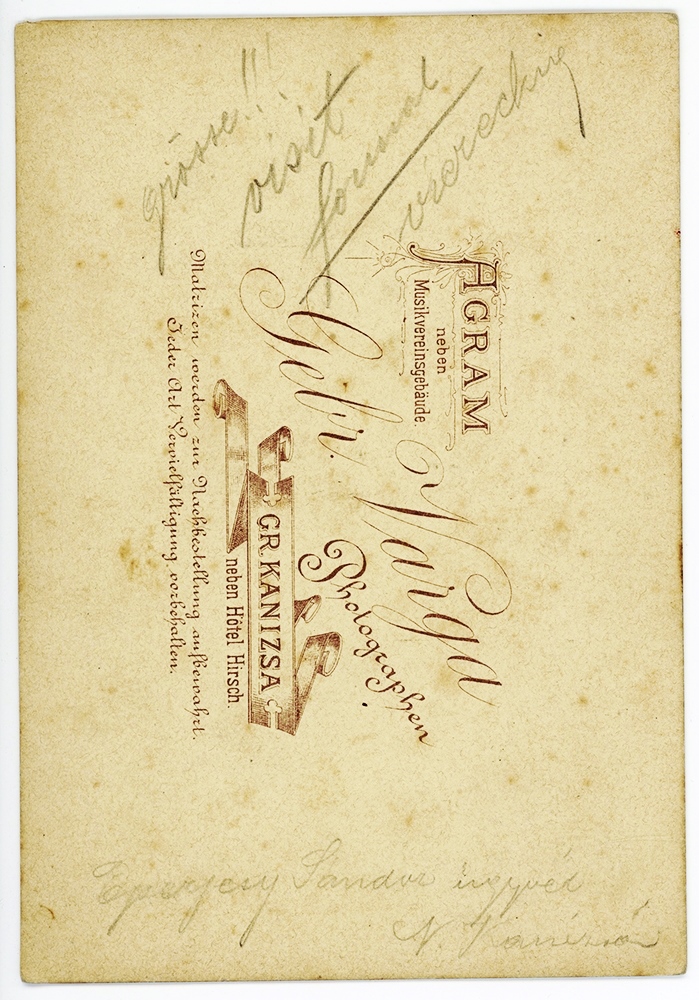 AGRAM
neben
Musikvereinsgebäude.
Gebr. Varga
Photographen
GR. KANIZSA
neben Hôtel Hirsch.
Matrizen werden zur Nachbestellung aufbewahrt.
Jeder Art Vervielfältigung vorbehalten.
viereckig
format
visit
grösse!!!
Eperjesy Sándor ügyvéd
N. Kanizsán